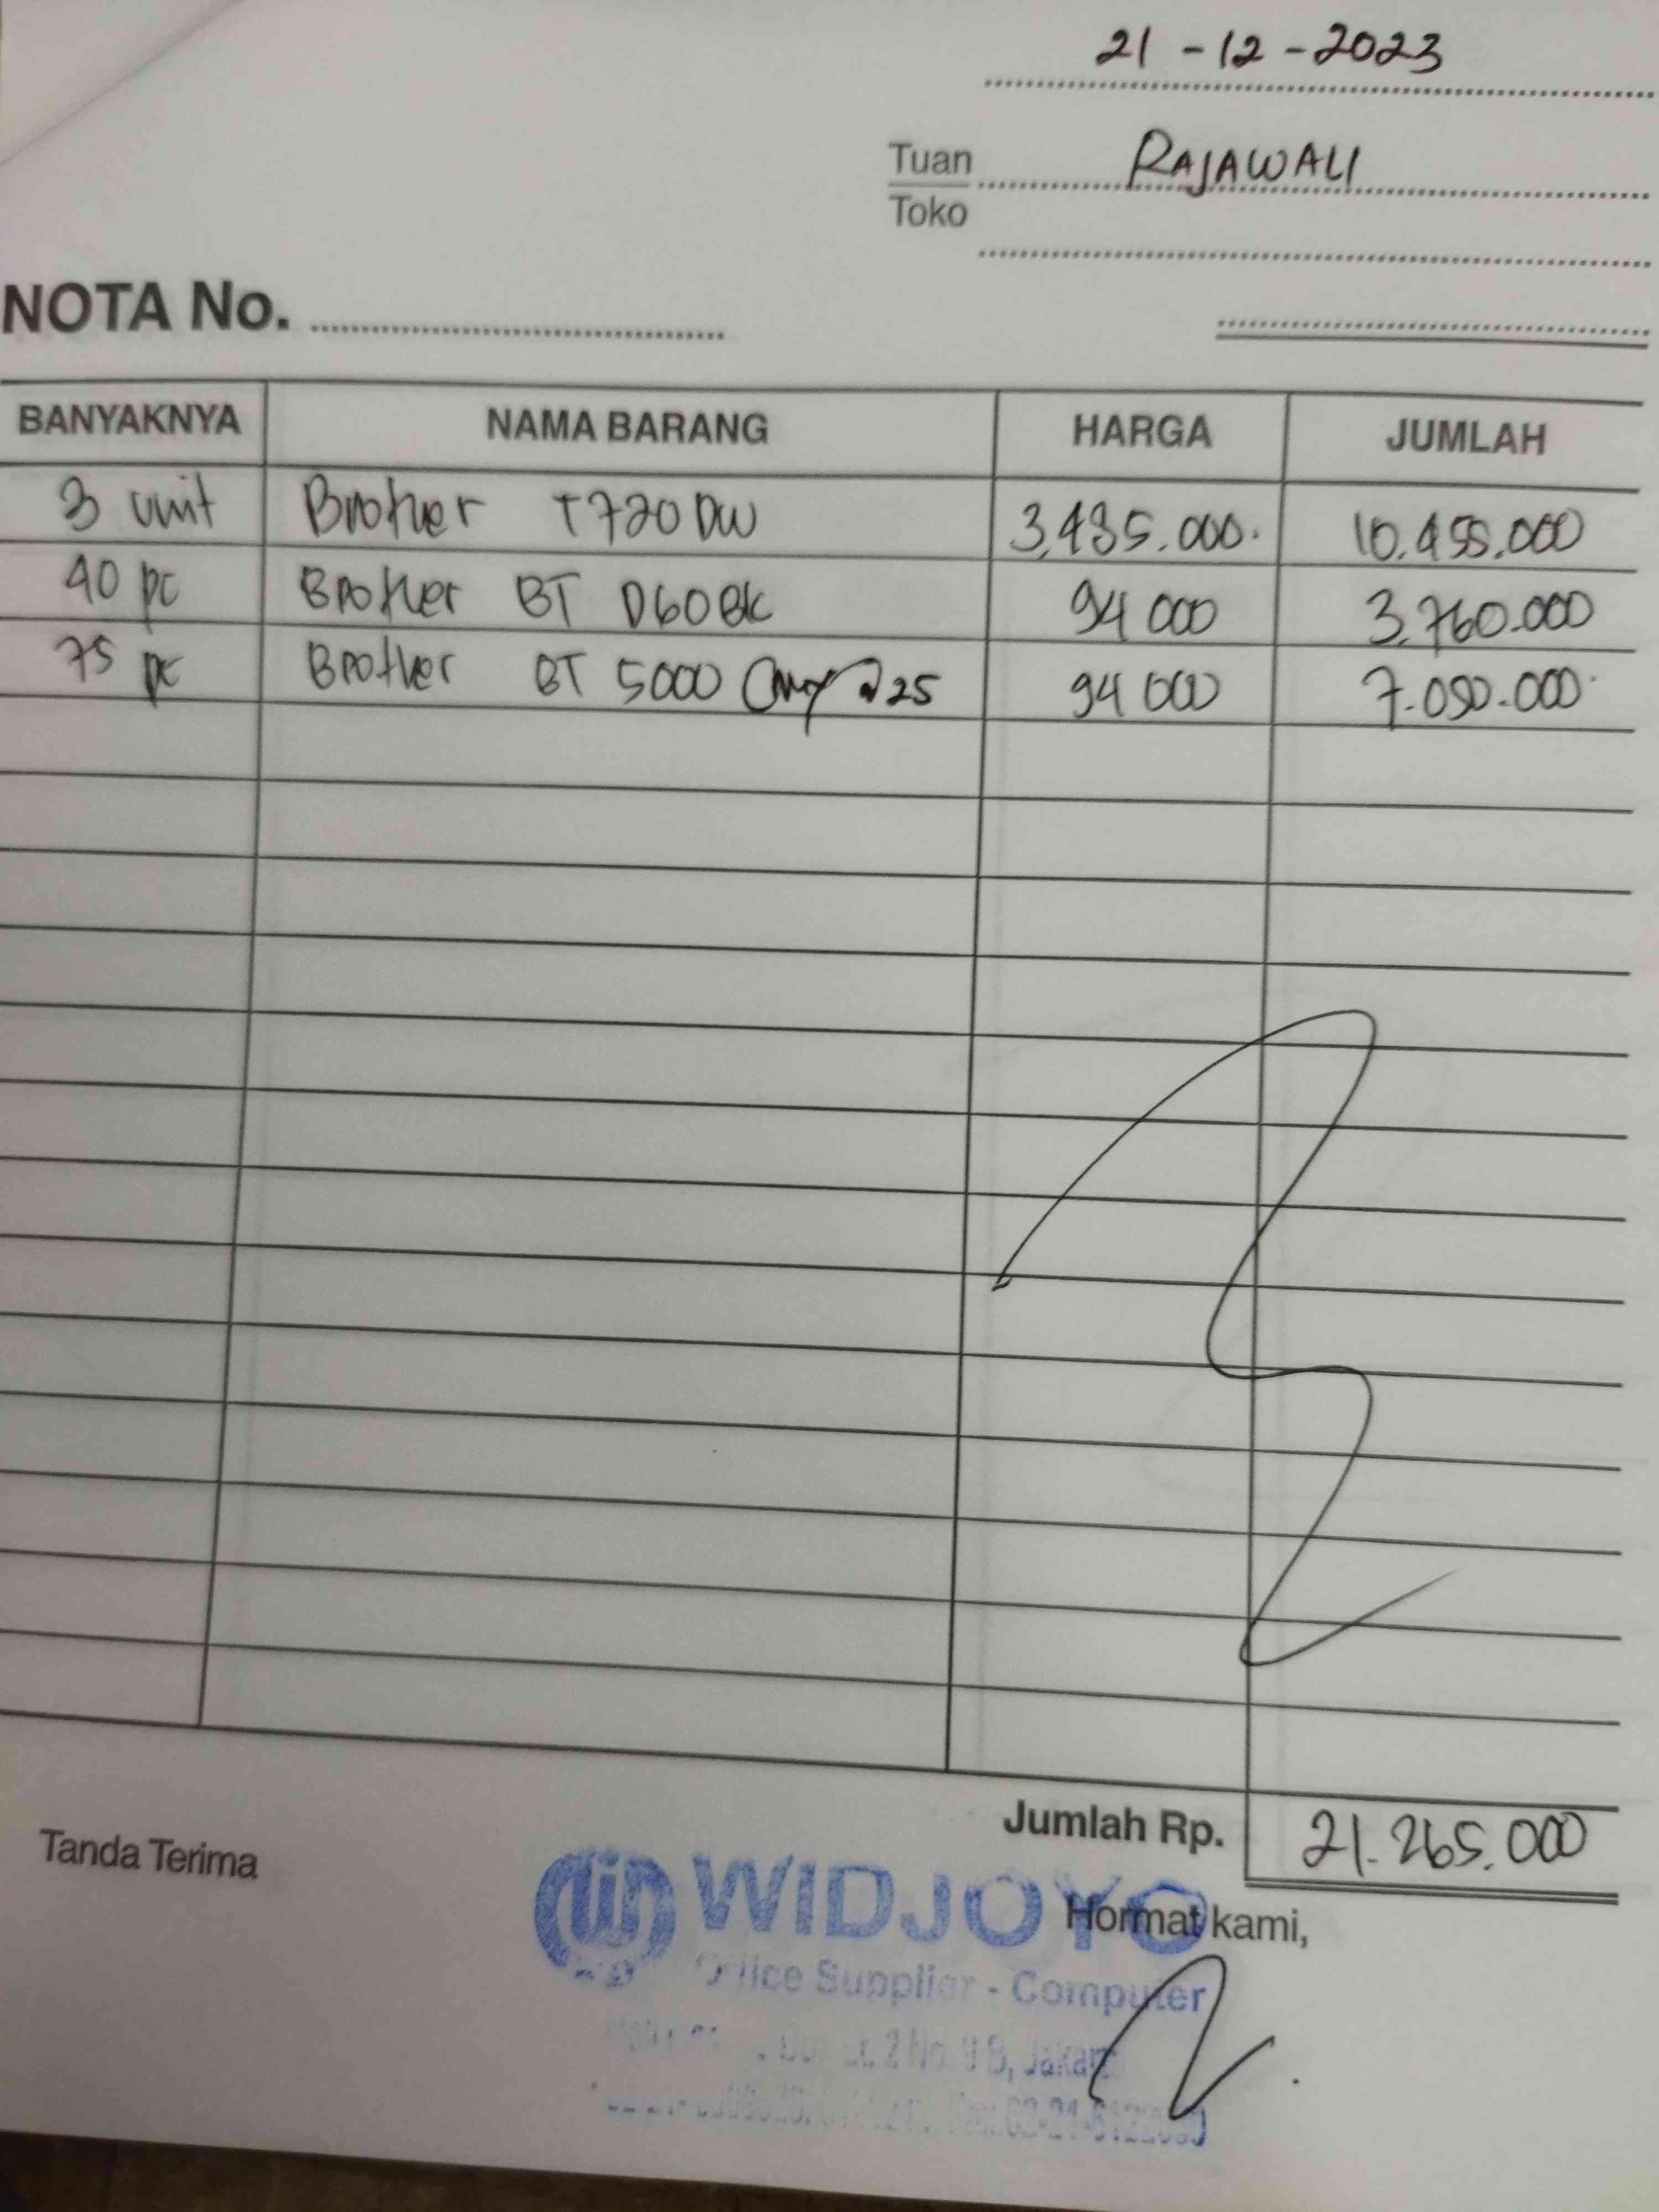 21 - 12 - 2023
Tuan RAJAWALI
Toko
NOTA No.
BANYAKNYA NAMA BARANG HARGA JUMLAH
3 unit Brother T720DW 3.485.000. 10.455.000
40 pc Brother BT D60BK 94 000 3.760.000
75 pc Brother BT 5000 @25 94 000 7.050.000
Jumlah Rp. 21.265.000
Tanda Terima
WIDJOYO
Hormat kami,
Office Supplier - Computer
2 No. 9 B, Jakarta